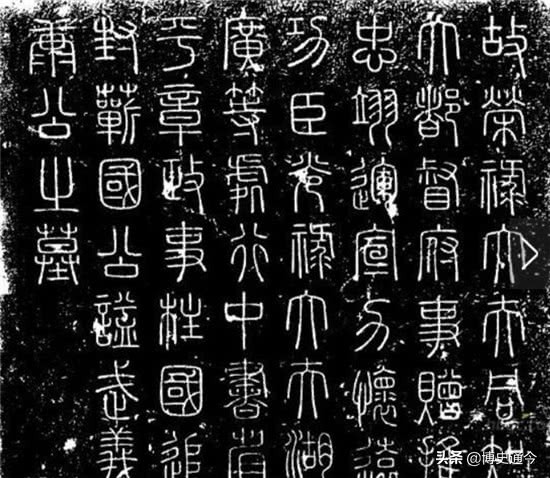 故榮祿大夫同知
大都督府事贈推
忠翊運宣力懷遠
功臣光祿大夫湖
廣等處行中書省
平章政事柱國追
封蘄國公謚武義
康公之墓
头条 @博史通今